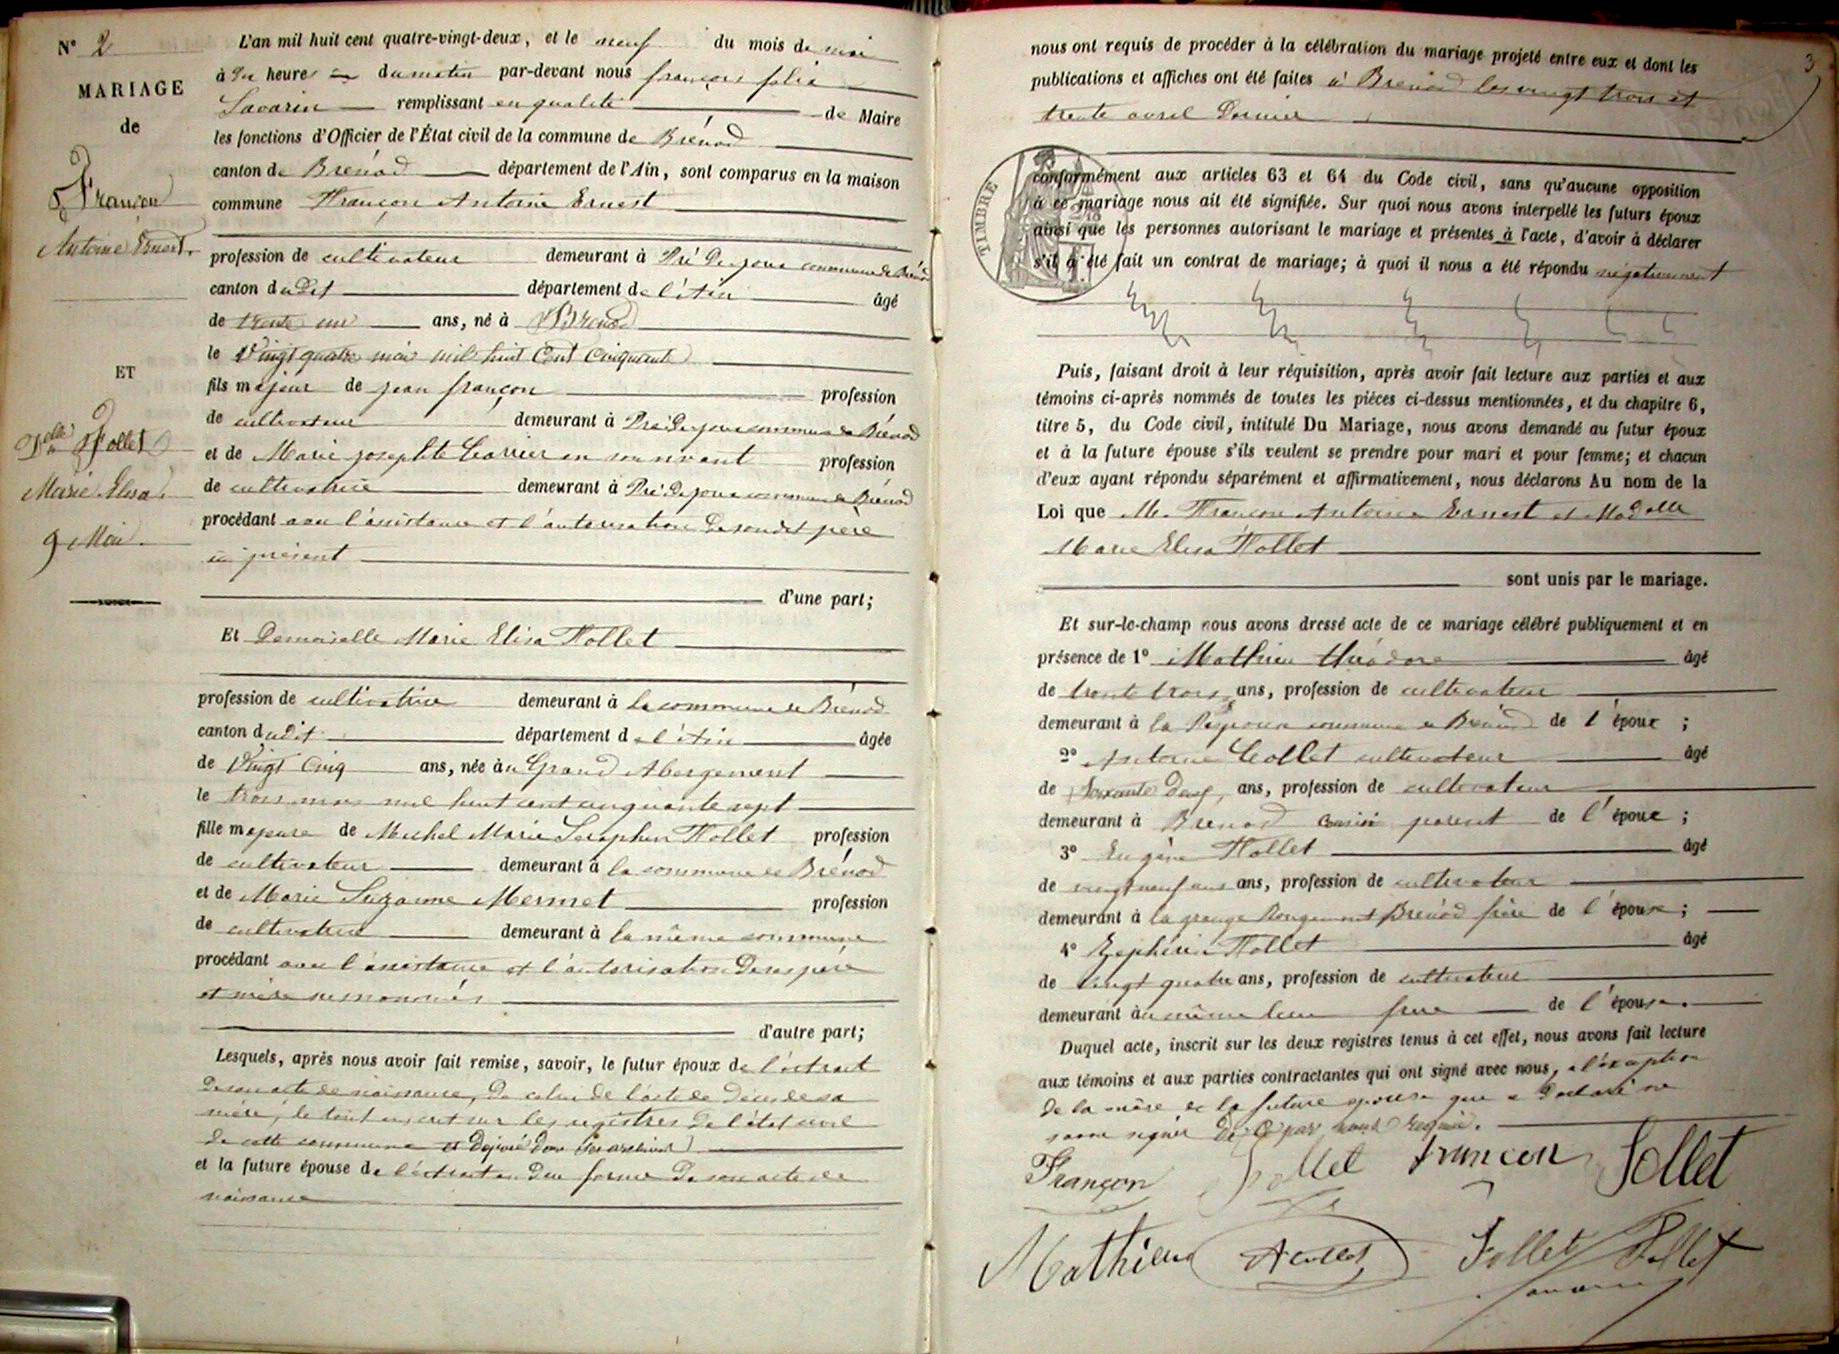 N° 2
MARIAGE
de
Françon
Antoine Ernest
ET
Delle Follet
Marie Elisa
9 Mai
L'an mil huit cent quatre-vingt-deux, et le neuf du mois de mai
à dix heures du matin par-devant nous françois félix
Savarin remplissant en qualité de Maire
les fonctions d'Officier de l'État civil de la commune de Brénod
canton de Brénod département de l'Ain, sont comparus en la maison
commune Françon Antoine Ernest
profession de cultivateur demeurant à Pré commune de Brénod
canton dudit département de l'Ain âgé
de trente un ans, né à Brénod
le Vingt quatre mai mil huit Cent Cinquante
fils majeur de jean françon profession
de cultivateur demeurant à Pré commune de Brénod
et de Marie josephte en son vivant profession
de cultivatrice demeurant à Pré commune de Brénod
procédant avec l'assistance et l'autorisation de son dit père
ici présent
d'une part;
Et Demoiselle Marie Elisa Follet
profession de cultivatrice demeurant à la commune de Brénod
canton dudit département de l'Ain âgée
de Vingt Cinq ans, née au Grand Abergement
le trois mars mil huit cent cinquante sept
fille majeure de Michel Marie Seraphin Follet profession
de cultivateur demeurant à la commune de Brénod
et de Marie Suzanne Mermet profession
de cultivatrice demeurant à la même commune
procédant avec l'assistance et l'autorisation de ses père
et mère susnommés
d'autre part;
Lesquels, après nous avoir fait remise, savoir, le futur époux de l'extrait
de son acte de naissance, de celui de l'acte de décès de sa
mère, le tout inscrit sur les registres de l'état civil
de cette commune et déposé dans les archives
et la future épouse de l'extrait en due forme de son acte de
naissance
3
nous ont requis de procéder à la célébration du mariage projeté entre eux et dont les
publications et affiches ont été faites à Brénod les vingt trois et
trente avril dernier
TIMBRE
conformément aux articles 63 et 64 du Code civil, sans qu'aucune opposition
à ce mariage nous ait été signifiée. Sur quoi nous avons interpellé les futurs époux
ainsi que les personnes autorisant le mariage et présentes à l'acte, d'avoir à déclarer
s'il a été fait un contrat de mariage; à quoi il nous a été répondu négativement
Puis, faisant droit à leur réquisition, après avoir fait lecture aux parties et aux
témoins ci-après nommés de toutes les pièces ci-dessus mentionnées, et du chapitre 6,
titre 5, du Code civil, intitulé Du Mariage, nous avons demandé au futur époux
et à la future épouse s'ils veulent se prendre pour mari et pour femme; et chacun
d'eux ayant répondu séparément et affirmativement, nous déclarons Au nom de la
Loi que Mr. Françon Antoine Ernest et Madelle
Marie Elisa Follet
sont unis par le mariage.
Et sur-le-champ nous avons dressé acte de ce mariage célébré publiquement et en
présence de 1° Mathieu théodore âgé
de trente trois ans, profession de cultivateur
demeurant à la commune de Brénod de l'époux ;
2° Antoine Collet cultivateur âgé
de Soixante deux ans, profession de cultivateur
demeurant à Brenod cousin parent de l'époux ;
3° Eugène Follet âgé
de vingt neuf ans ans, profession de cultivateur
demeurant à la grange Rougemont Brénod frère de l'épouse ;
4° Zéphirin Follet âgé
de vingt quatre ans, profession de cultivateur
demeurant au même lieu frère de l'épouse.
Duquel acte, inscrit sur les deux registres tenus à cet effet, nous avons fait lecture
aux témoins et aux parties contractantes qui ont signé avec nous, a l'exception
de la mère de la future épouse qui a déclaré ne
savoir signer de ce par nous requise.
Françon Follet françon Follet
Mathieu A Collet Follet Follet
Savarin